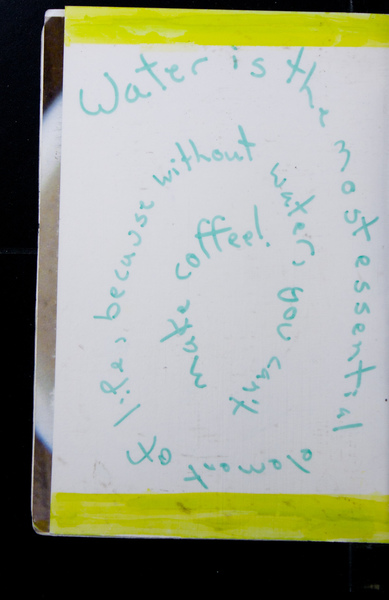 Water is the most essential element of life, because without water, you can't make coffee!